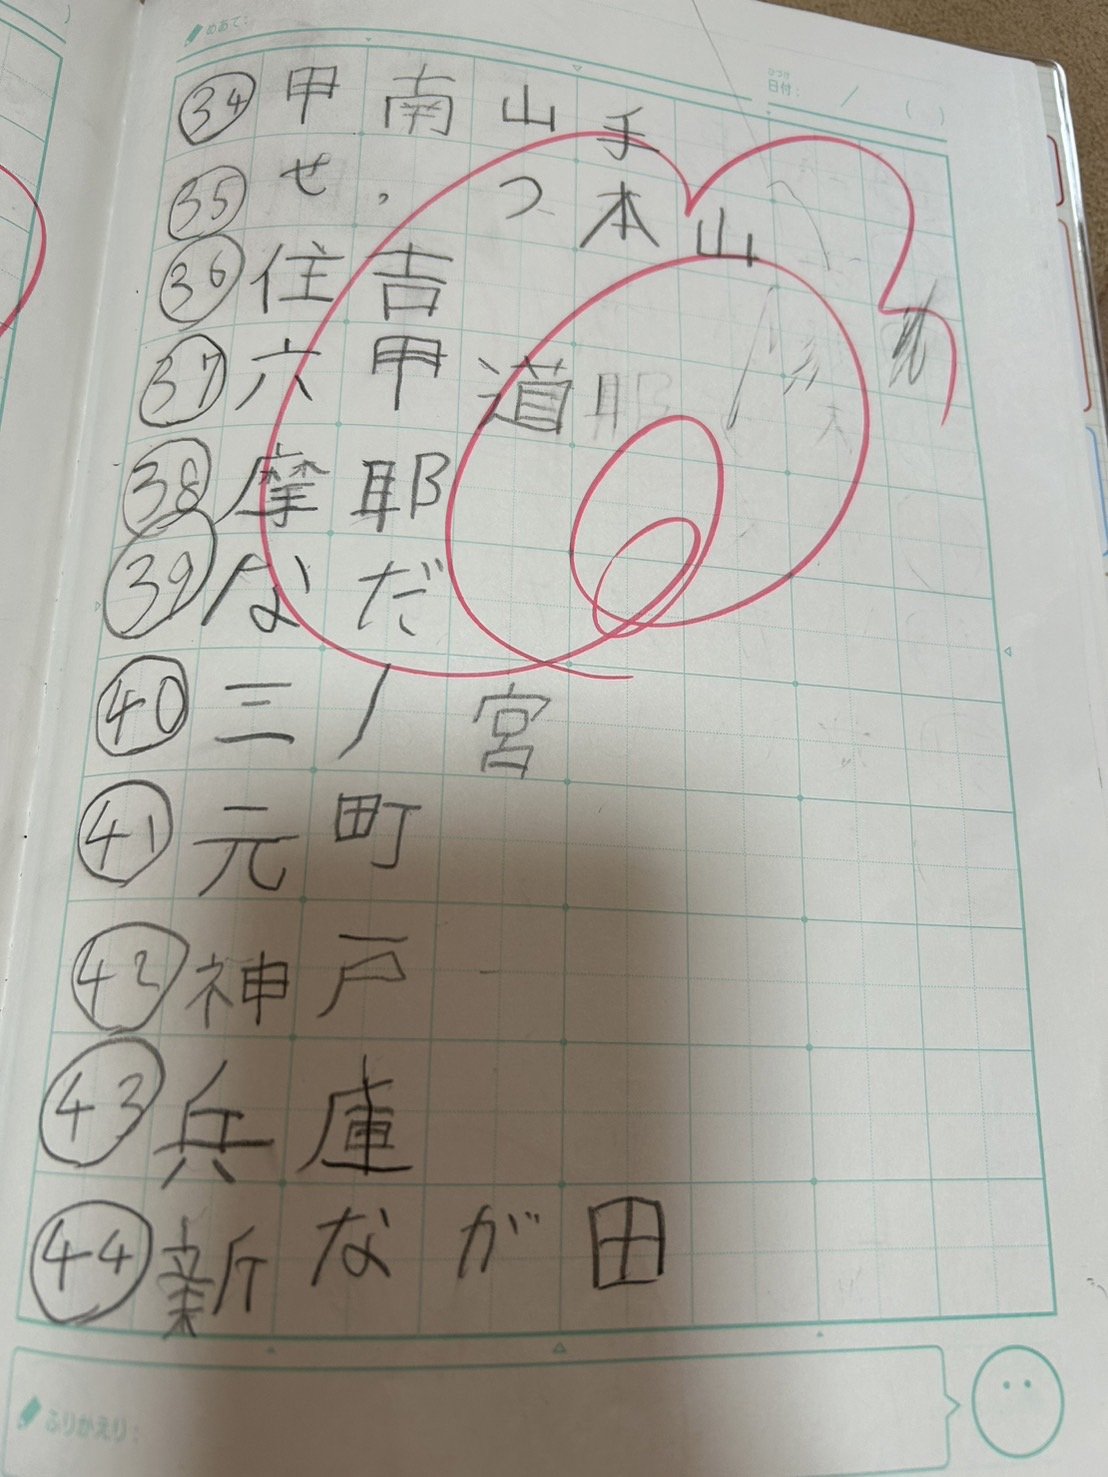 めあて：
日付： ／ （ ）
㉞ 甲南山手
㉟ せっつ本山
㊱ 住吉
㊲ 六甲道
㊳ 摩耶
㊴ なだ
㊵ 三ノ宮
㊶ 元町
㊷ 神戸
㊸ 兵庫
㊹ 新なが田
ふりかえり：